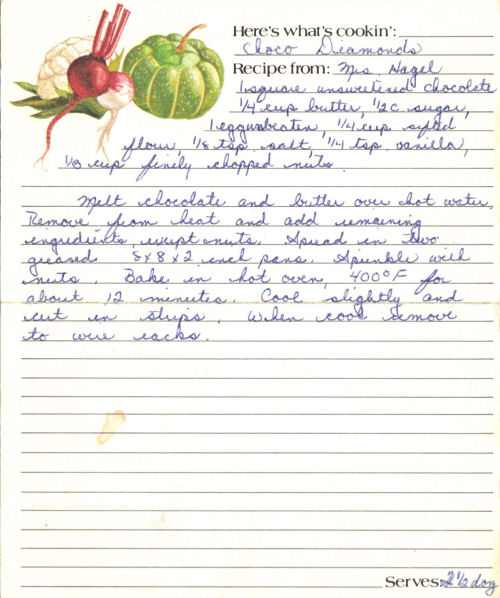 Here's what's cookin':
Choco Diamonds
Recipe from: Mrs Nagel
1 square unsweetened chocolate
1/4 cup butter, 1/2 c. sugar,
1 egg unbeaten 1/4 cup sifted
flour, 1/8 tsp salt, 1/4 tsp vanilla,
1/3 cup finely chopped nuts.
Melt chocolate and butter over hot water.
Remove from heat and add remaining
ingredients, except nuts. Spread in two
greased 8x8x2 inch pans. Sprinkle with
nuts. Bake in hot oven, 400°F for
about 12 minutes. Cool slightly and
cut in strips. When cool remove
to wire racks.
Serves: 2 1/2 doz